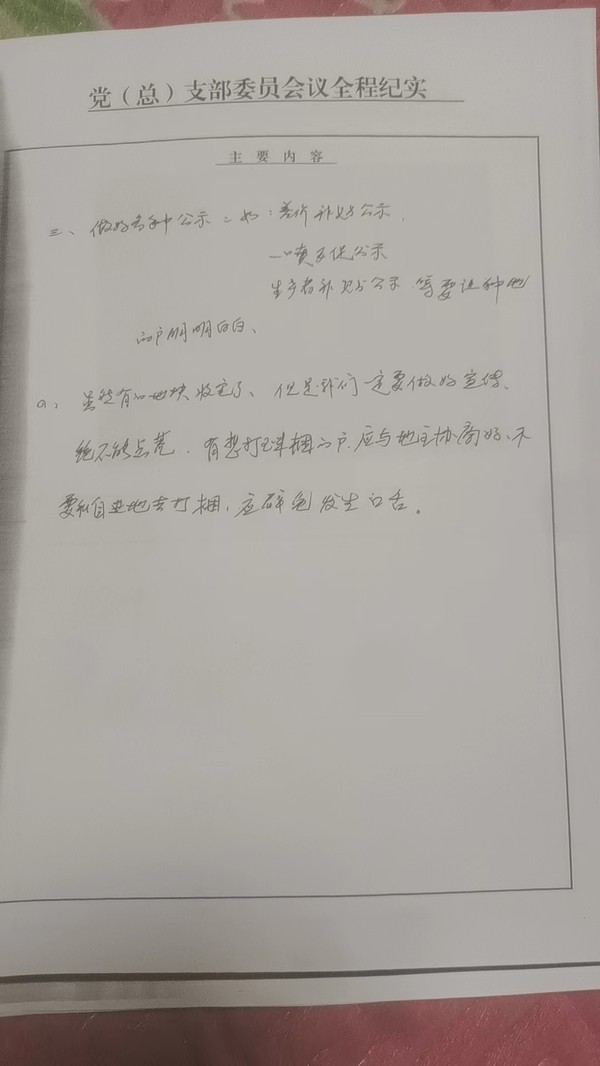 党（总）支部委员会议全程纪实
主要内容
三、做好各种公示：如：差价补贴公示、
一喷多促公示
生产者补贴公示 等要让种地
的户明明白白、
虽然有的地块收完了、但是我们一定要做好宣传、
绝不能点荒、有想打捆的户、应与地主协商好、不
要私自进地去打捆、应避免发生口舌。